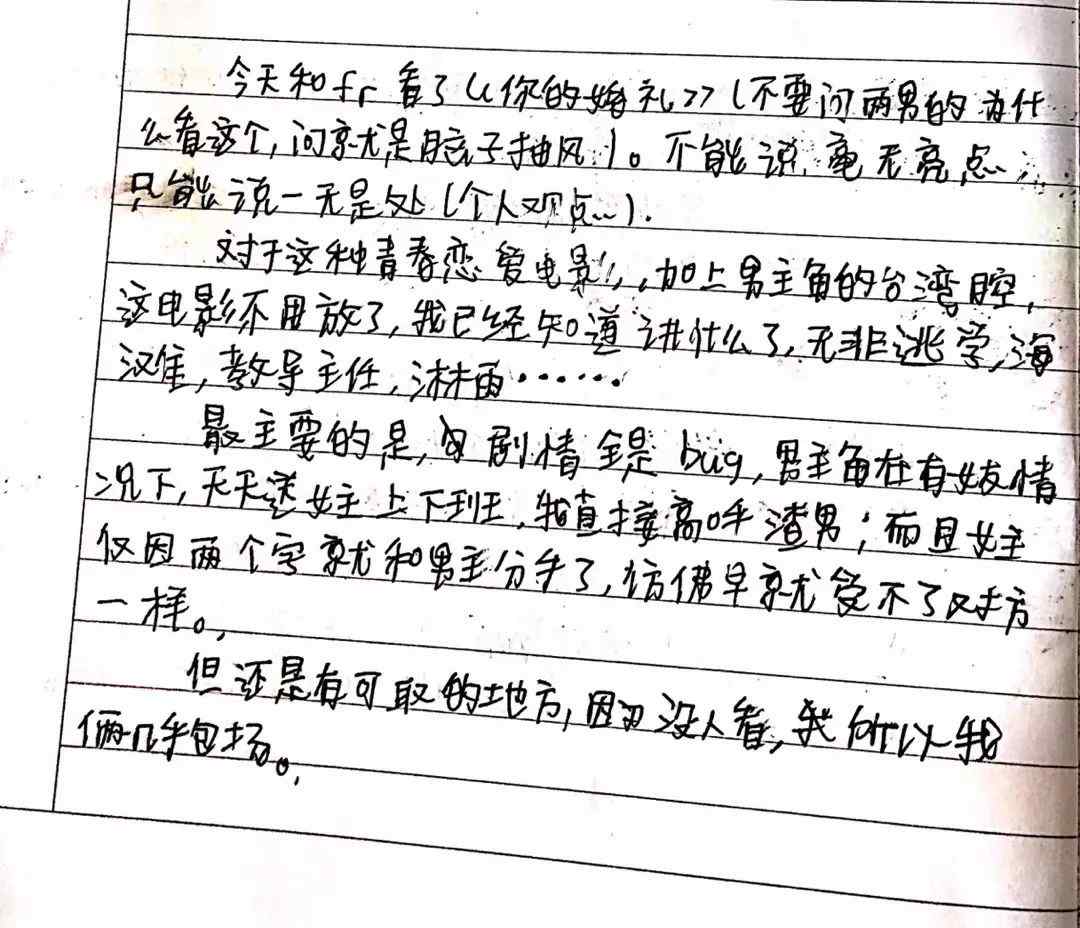 今天和fr看了《你的婚礼》(不要问两男的为什
么看这个,问就是脑子抽风)。不能说毫无亮点,
只能说一无是处(个人观点)。
对于这种青春恋爱电影,加上男主角的台湾腔,
这电影不用放了,我已经知道讲什么了,无非逃学,海
滩,教导主任,淋雨……
最主要的是,剧情全是bug,男主角在有女友情
况下,天天送女主上下班,我直接高呼渣男;而且女主
仅因两个字就和男主分手了,仿佛早就受不了对方
一样。
但还是有可取的地方,因为没人看,所以我
俩几乎包场。